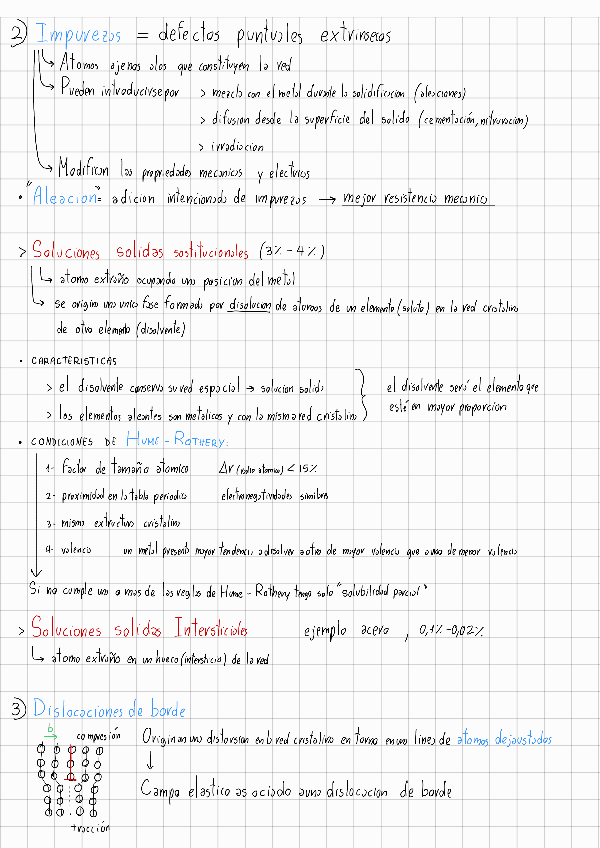 2) Impurezas = defectos puntuales extrinsecos
↳ Atomos ajenos alos que constituyen la red
↳ Pueden introducirse por > mezcla con el metal durante la solidificacion (aleaciones)
> difusion desde la superficie del solido (cementación, nitruracion)
> irradiacion
↳ Modifican las propiedades mecanicas y electricas
• "Aleacion" = adicion intencionada de impurezas → mejor resistencia mecanica
> Soluciones solidas sostitucionales (3% - 4%)
↳ atomo extraño ocupando una posicion del metal
↳ se origina una unica fase formada por disolucion de atomos de un elemento (soluto) en la red cristalina
de otro elemento (disolvente)
• CARACTERISTICAS
> el disolvente conserva su red espacial → solucion solida
> los elementos aleantes son metalicos y con la misma red cristalina
el disolvente será el elemento que
esté en mayor proporcion
• CONDICIONES DE HUME - ROTHERY:
1- factor de tamaño atomico Δr (radio atomico) < 15%
2- proximidad en la tabla periodica electronegatividades similares
3- misma extructura cristalina
4- valencia un metal presenta mayor tendencia a disolver a otro de mayor valencia que a uno de menor valencia
Si no cumple una o mas de las reglas de Hume - Rothery tengo solo "solubilidad parcial"
> Soluciones solidas Intersticiales ejemplo acero , 0,1% -0,02%
↳ atomo extraño en un hueco (intersticio) de la red
3) Dislocaciones de borde
b
compresión
Originan una distorsion en la red cristalina en torno en una linea de atomos dejaustados
↓
Campo elastico asociado a una dislocacion de borde
tracción